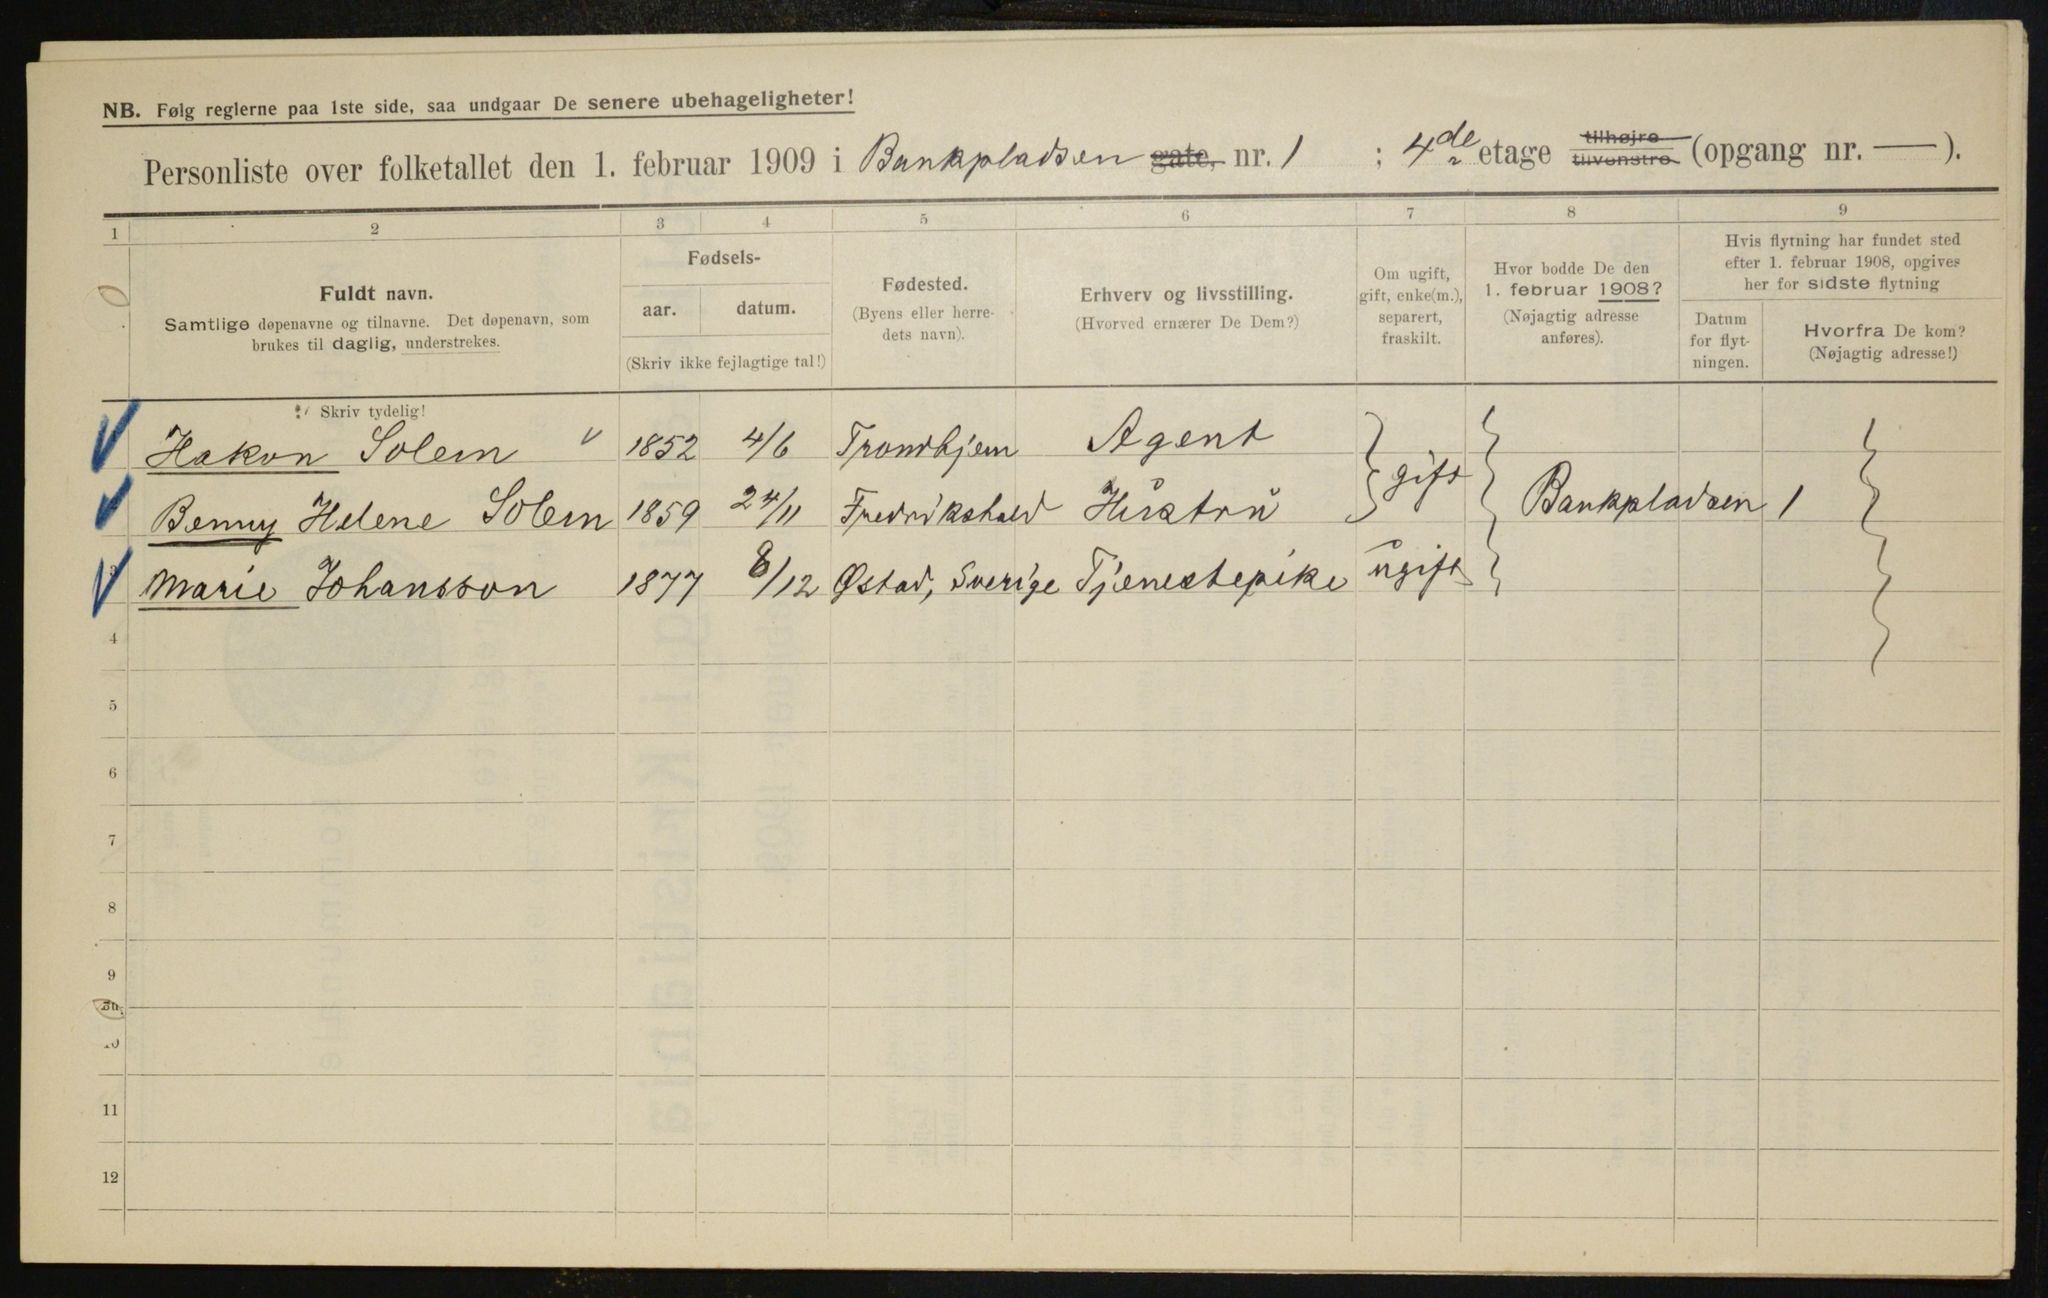 NB. Følg reglerne paa 1ste side, saa undgaar De senere ubehageligheter!
Personliste over folketallet den 1. februar 1909 i Bankpladsen gate, nr. 1 ; 4de etage tilhøjre tilvenstre (opgang nr. — ).
1 2 3 4 5 6 7 8 9
Fuldt navn.
Samtlige døpenavne og tilnavne. Det døpenavn, som
brukes til daglig, understrekes.
Fødsels-
aar. datum.
(Skriv ikke fejlagtige tal!)
Fødested.
(Byens eller herre-
dets navn).
Erhverv og livsstilling.
(Hvorved ernærer De Dem?)
Om ugift,
gift, enke(m.),
separert,
fraskilt.
Hvor bodde De den
1. februar 1908?
(Nøjagtig adresse
anføres).
Hvis flytning har fundet sted
efter 1. februar 1908, opgives
her for sidste flytning
Datum
for flyt-
ningen.
Hvorfra De kom?
(Nøjagtig adresse!)
Skriv tydelig!
Hakon Solem 1852 4/6 Trondhjem Agent
gift
Benny Helene Solem 1859 24/11 Fredrikshald Hustru Bankpladsen 1
3 Marie Johansson 1877 8/12 Østad, Sverige Tjenestepike ugift
4
5
6
7
8
9
10
11
12